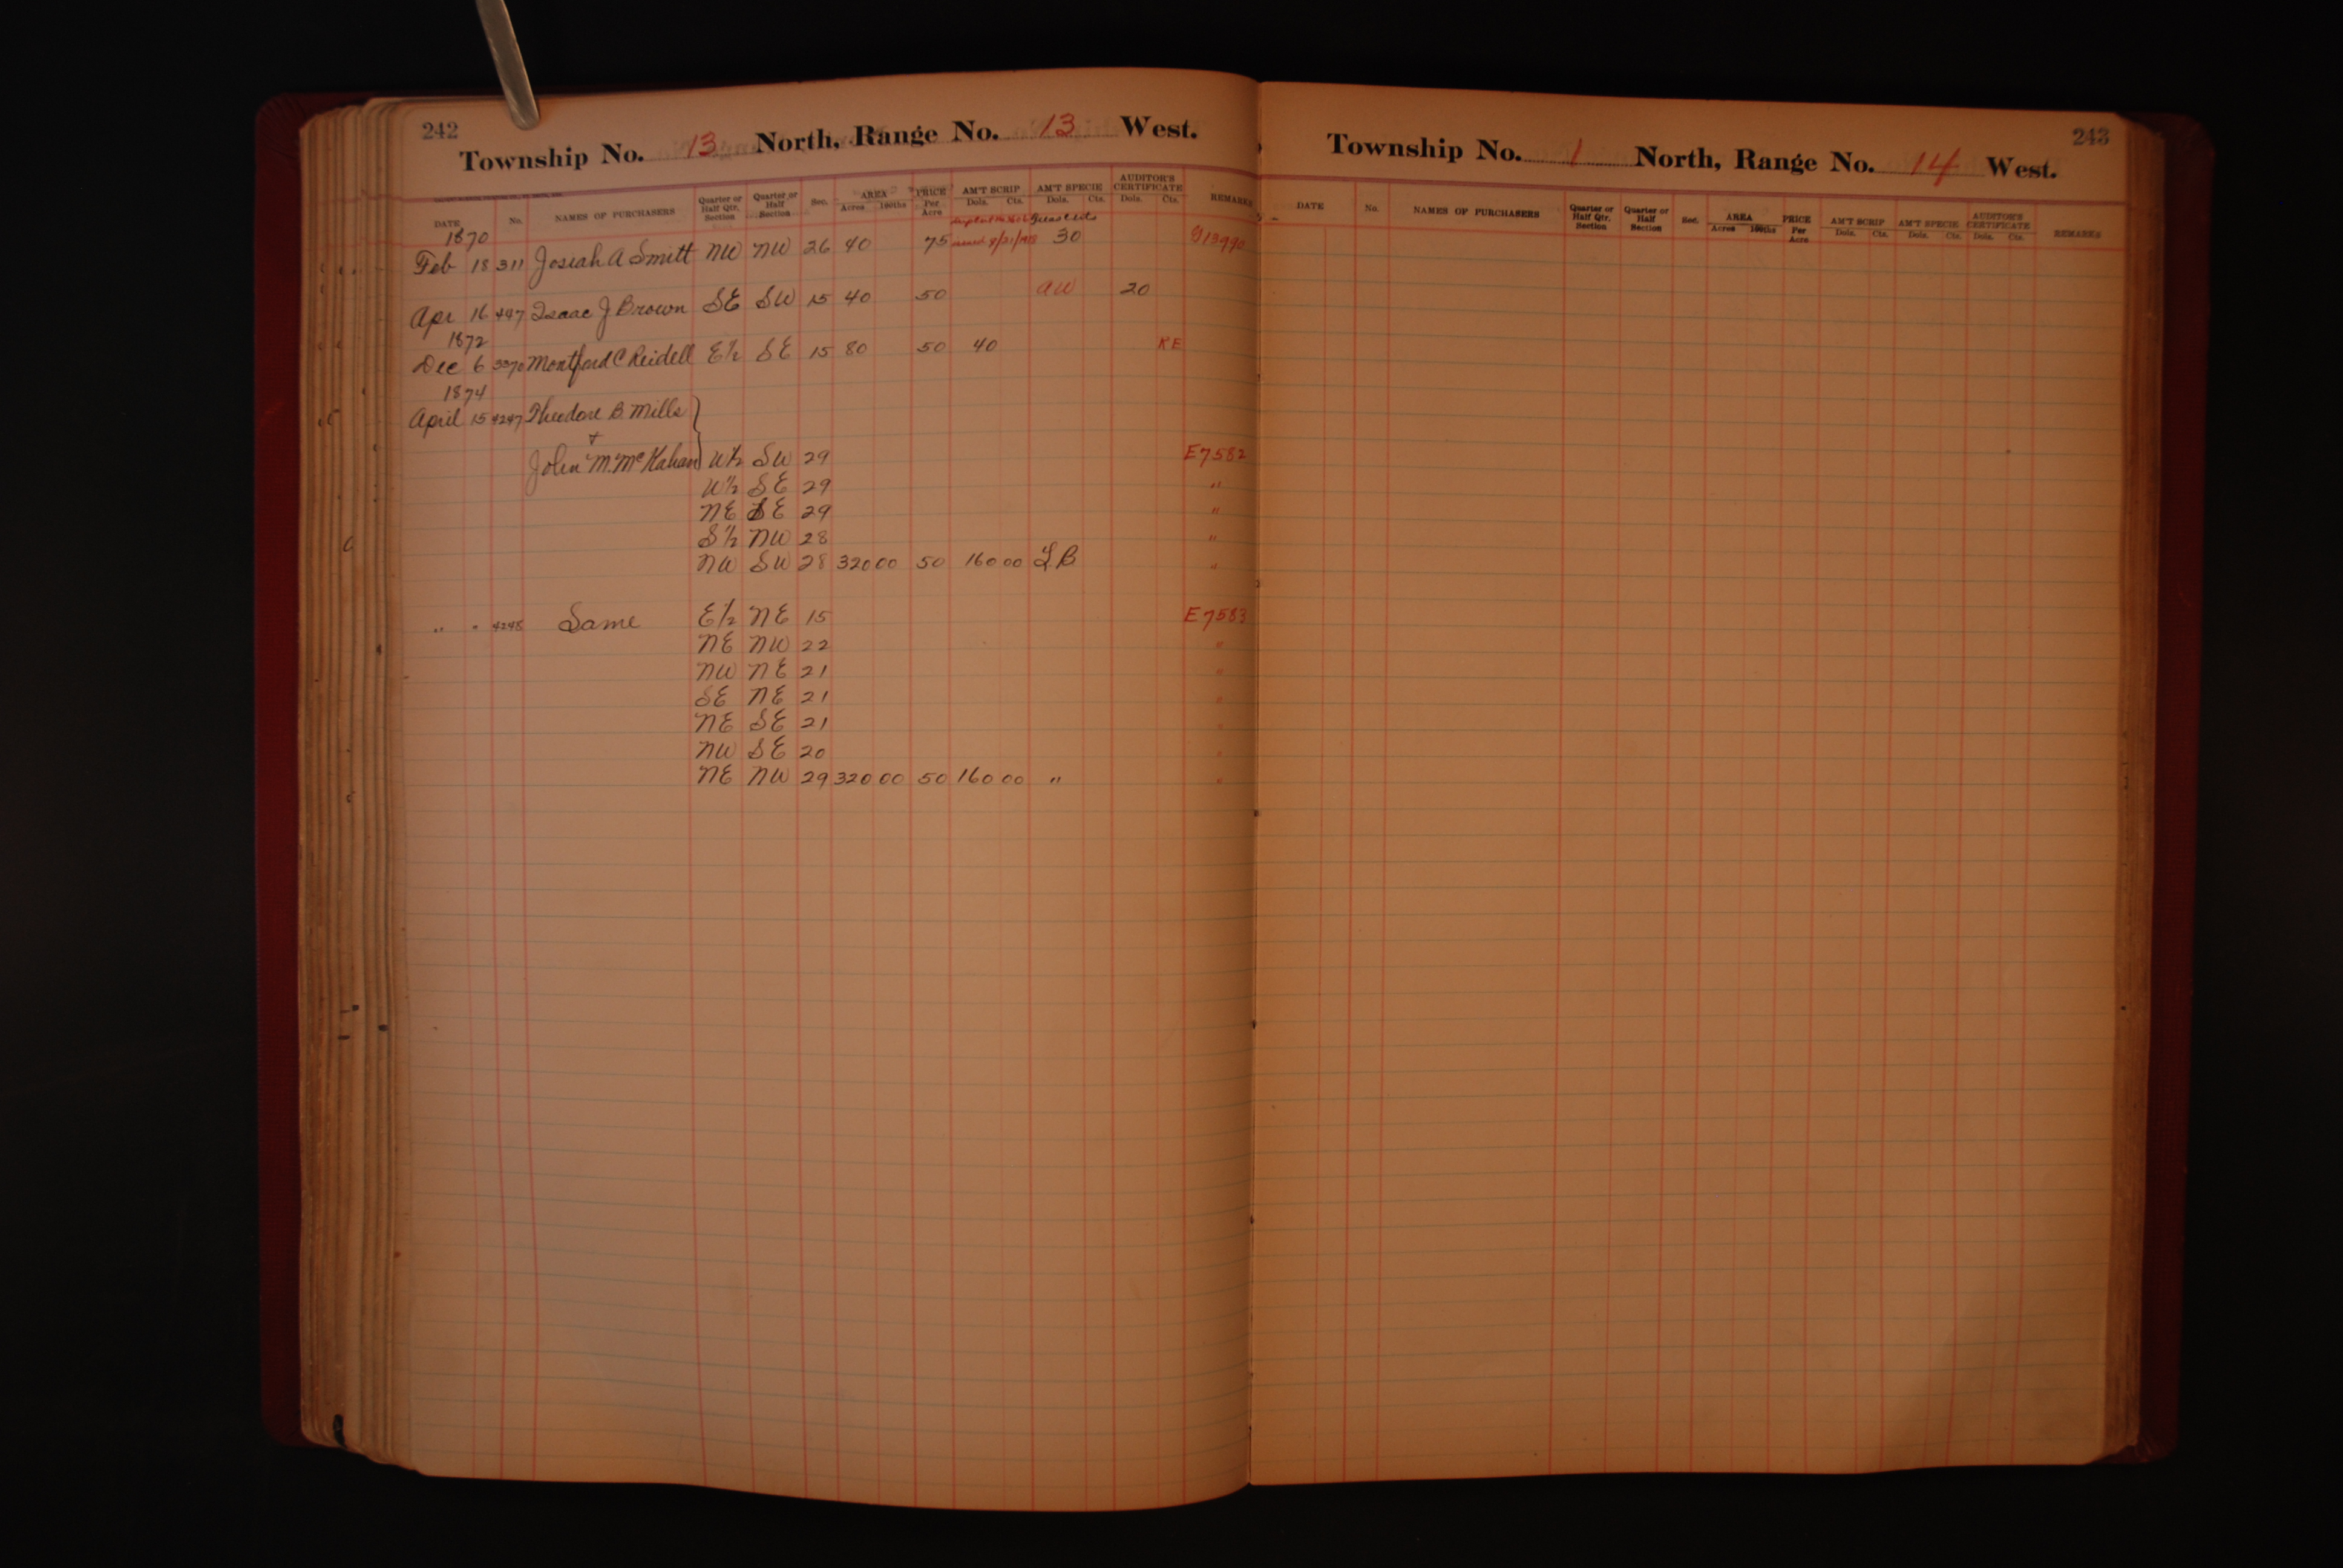 242
Township No. 13 North, Range No. 13 West.
DATE No. NAMES OF PURCHASERS Quarter or Half Qtr. Section Quarter or Half Section Sec. AREA Acres 100ths PRICE Per Acre AM'T SCRIP Dols. Cts. AM'T SPECIE Dols. Cts. AUDITOR'S CERTIFICATE Dols. Cts. REMARKS
1870
Feb 18 311 Josiah A Smitt NW NW 26 40 75 30 13990
Apr 16 497 Isaac J Brown SE SW 15 40 50 aw 20
1872
Dec 6 3370 Montford C Reidell E½ SE 15 80 50 40 KE
1874
April 15 4247 Theodore B. Mills
+
John M. McKahan W½ SW 29 E7582
W½ SE 29 "
NE SE 29 "
S½ NW 28 "
NW SW 28 320 00 50 160 00 LB "
" " 4248 Same E½ NE 15 E7583
NE NW 22 "
NW NE 21 "
SE NE 21 "
NE SE 21 "
NW SE 20 "
NE NW 29 320 00 50 160 00 " "
243
Township No. 1 North, Range No. 14 West.
DATE No. NAMES OF PURCHASERS Quarter or Half Qtr. Section Quarter or Half Section Sec. AREA Acres 100ths PRICE Per Acre AM'T SCRIP Dols. Cts. AM'T SPECIE Dols. Cts. AUDITOR'S CERTIFICATE Dols. Cts. REMARKS